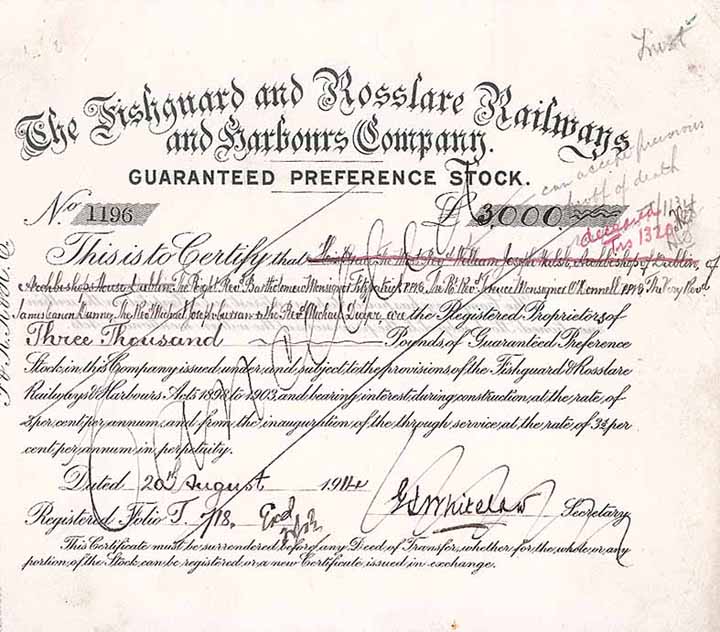 Trust
The Fishguard and Rosslare Railways
and Harbours Company.
GUARANTEED PREFERENCE STOCK.
can accept previous
proof of death
No 1196
£3,000
deceased
Trs 1320
This is to Certify that His Grace The Most Revd William Joseph Walsh, Archbishop of Dublin, of
Archbishop's House Dublin, The Right Revd Bartholomew Monsignor Fitzpatrick P.P.V.G. The Rt Revd Monsigner O'Connell P.P.V.G The Very Revd
James Canon Dunne, The Revd Michael Joseph Curran & The Revd Michael are the Registered Proprietors of
Three Thousand Pounds, of Guaranteed Preference
Stock in this Company issued under, and subject to the provisions of the Fishguard & Rosslare
Railways & Harbours Acts 1898 to 1903, and bearing interest during construction, at the rate of
per cent per annum, and from the inauguration of the through service, at the rate of 3½ per
cent per annum in perpetuity.
Cancelled
Dated 20th August 1914
Registered Folio T. 718. Exd
Whitelaw Secretary
This Certificate must be surrendered before any Deed of Transfer, whether for the whole or any
portion of the Stock, can be registered or a new Certificate issued in exchange.